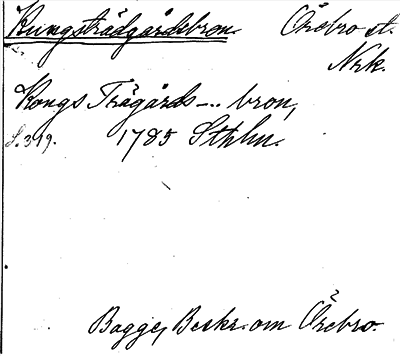 Kungsträdgårdsbron Örebro st.
Nrk.
Kongs Trägårds-.. bron,
S. 319. 1785 Sthlm.
Bagge, Beskr. om Örebro.